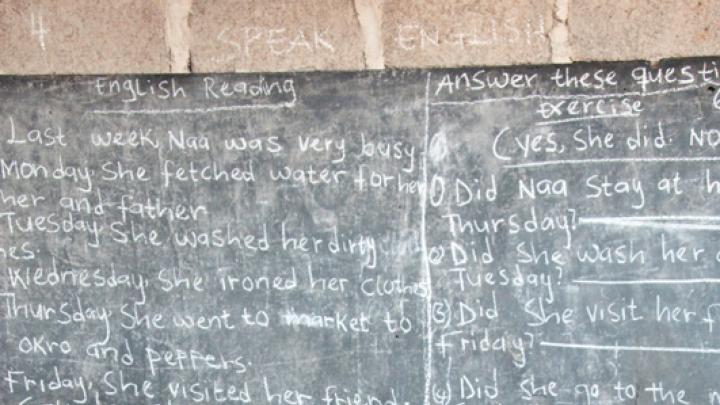 4
SPEAK ENGLISH
English Reading
Last week, Naa was very busy.
Monday, She fetched water for her
her and father
Tuesday She washed her dirty
hes.
Wednesday, She ironed her clothes
Thursday She went to market to
okro and peppers.
Friday, She visited her friend.
Answer these questi
exercise
(yes, She did. No
① Did Naa Stay at h
Thursday?
② Did She wash her
Tuesday?
③ Did She visit her f
friday?
④ Did she go to the m